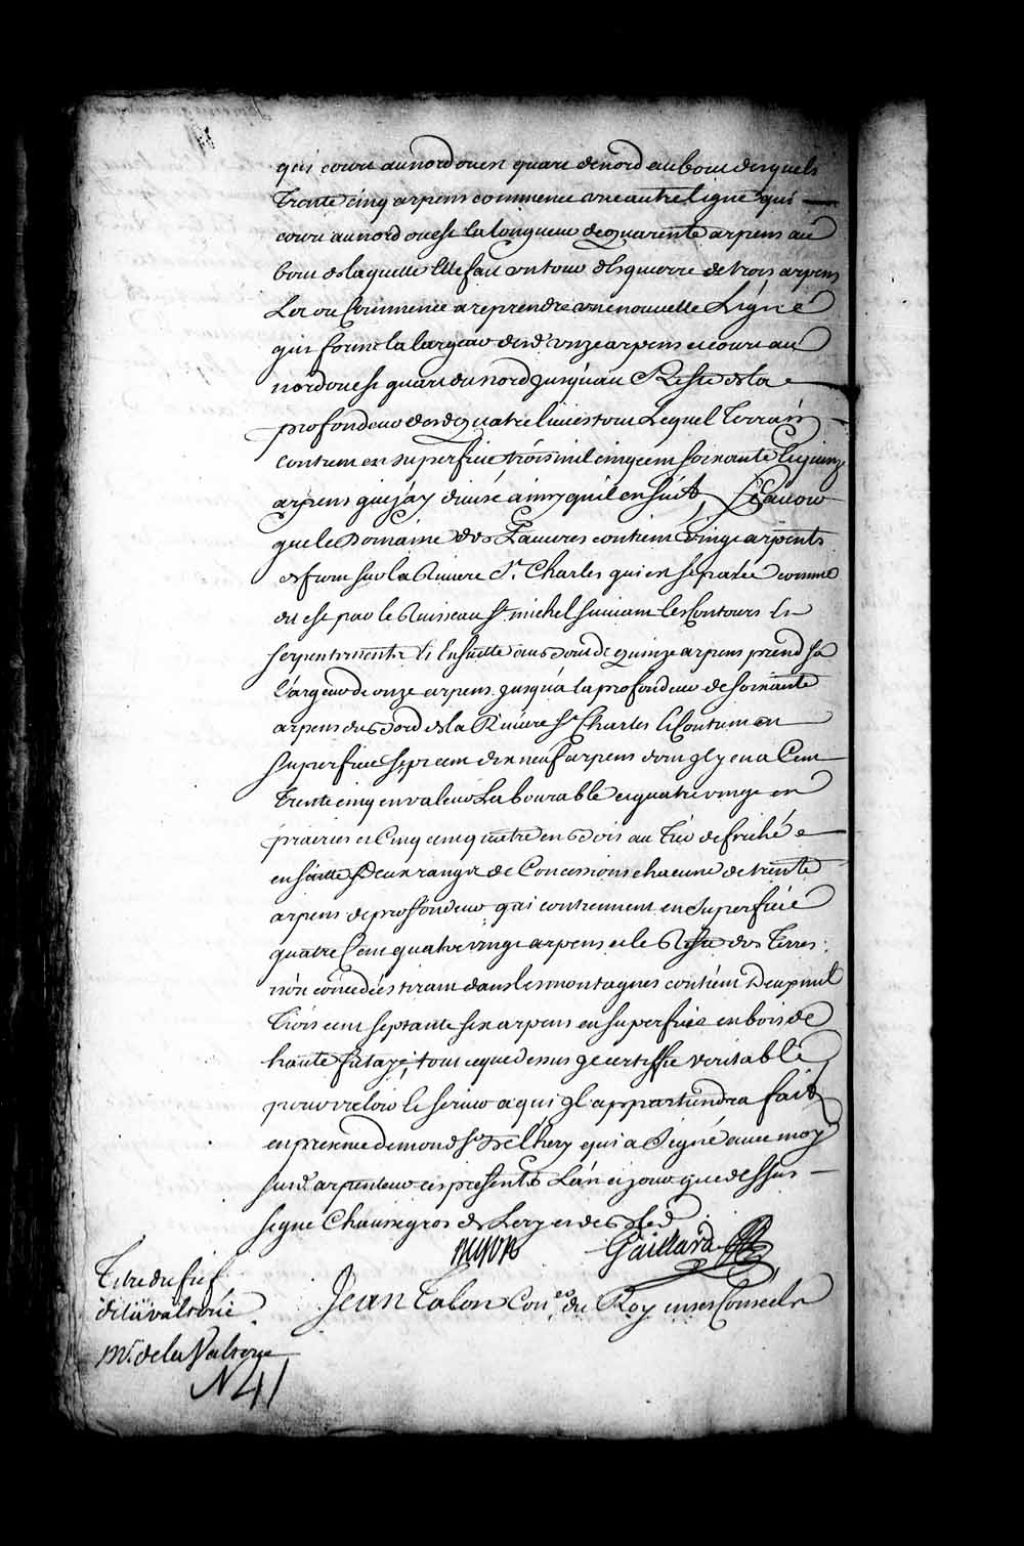 qui court au nord ouest quart de nord au bout desquels
Trente cinq arpens commence une autre ligne qui
court au nord ouest la longueur de quarente arpens au
bout de laquelle Elle fait un tour d'esquerre de trois arpens
Lor ou Commence a reprendre une nouvelle Ligne
qui forme la largeur desd. unze arpens et court au
nord ouest quart du nord jusqu'au Reste de la
profondeur desd. quatre lieues tout Lequel Terrain
contient en superficie trois mil cinq cent soixante Et quinze
arpens que j'ay divisé ainsy qu'il en suit, Scavoir
que le Domaine des Pauvres contient vingt arpents
de front sur la Riviere St. Charles qui est separée comme
dit est par le Ruisseau St. michel suivant les Contours Et
serpentements Et En suitte au bout de quinze arpens prend sa
Largeur de onze arpens jusqu'a la profondeur de soixante
arpens du bord de la Riviere St. Charles Et Contient en
superficie sept cent dix neuf arpens dont jl y en a Cent
Trente cinq en valeur Labourable et quatre vingt en
prairies et Cinq cent quatre en bois au Trio defriché
en suitte Deux rangs de Concessions chacune de trente
arpens de profondeur qui contiennent en superficie
quatre Cent quatre vingt arpens et le Reste des Terres
non concedées tirant dans les montagnes contient Deux mil
Trois cent septante six arpens en superficie en bois de
haute futaye, tout ce que dessus je certiffie veritable
pour valoir Et servir a qui jl appartiendra fait
en presence de mond. Sr. Delhery qui a Signé avec moy
susd. arpenteur ces presentes L'an et jour que dessus
signé Chaussegros de Lery et de
Gaillard
Titre du fief
de la valterie
Jean Talon Coner. du Roy en ses Conseils
Mr. de la Valterye
N 41